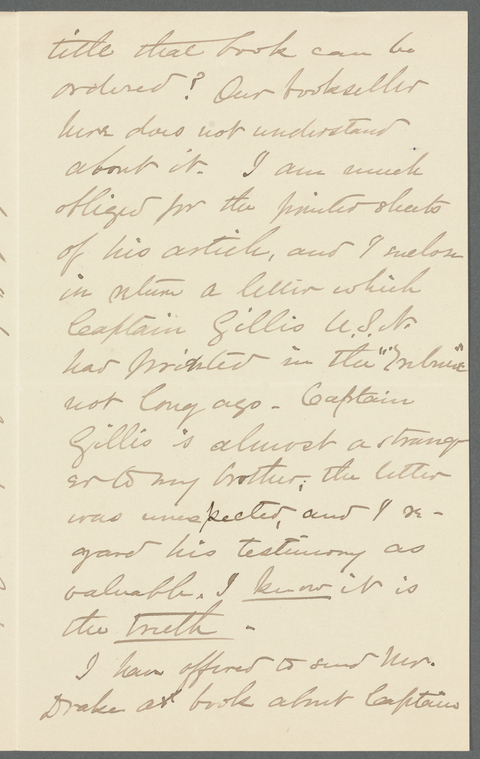 title that book can be
ordered? Our bookseller
here does not understand
about it. I am much
obliged for the printed sheets
of his article, and I enclose
in return a letter which
Captain Gillis U.S.N.
had printed in the "Tribune"
not long ago - Captain
Gillis is almost a strang-
er to my brother; the letter
was unexpected, and I re-
gard his testimony as
valuable. I know it is
the truth -
I have offered to send Mr.
Drake a book about Captain